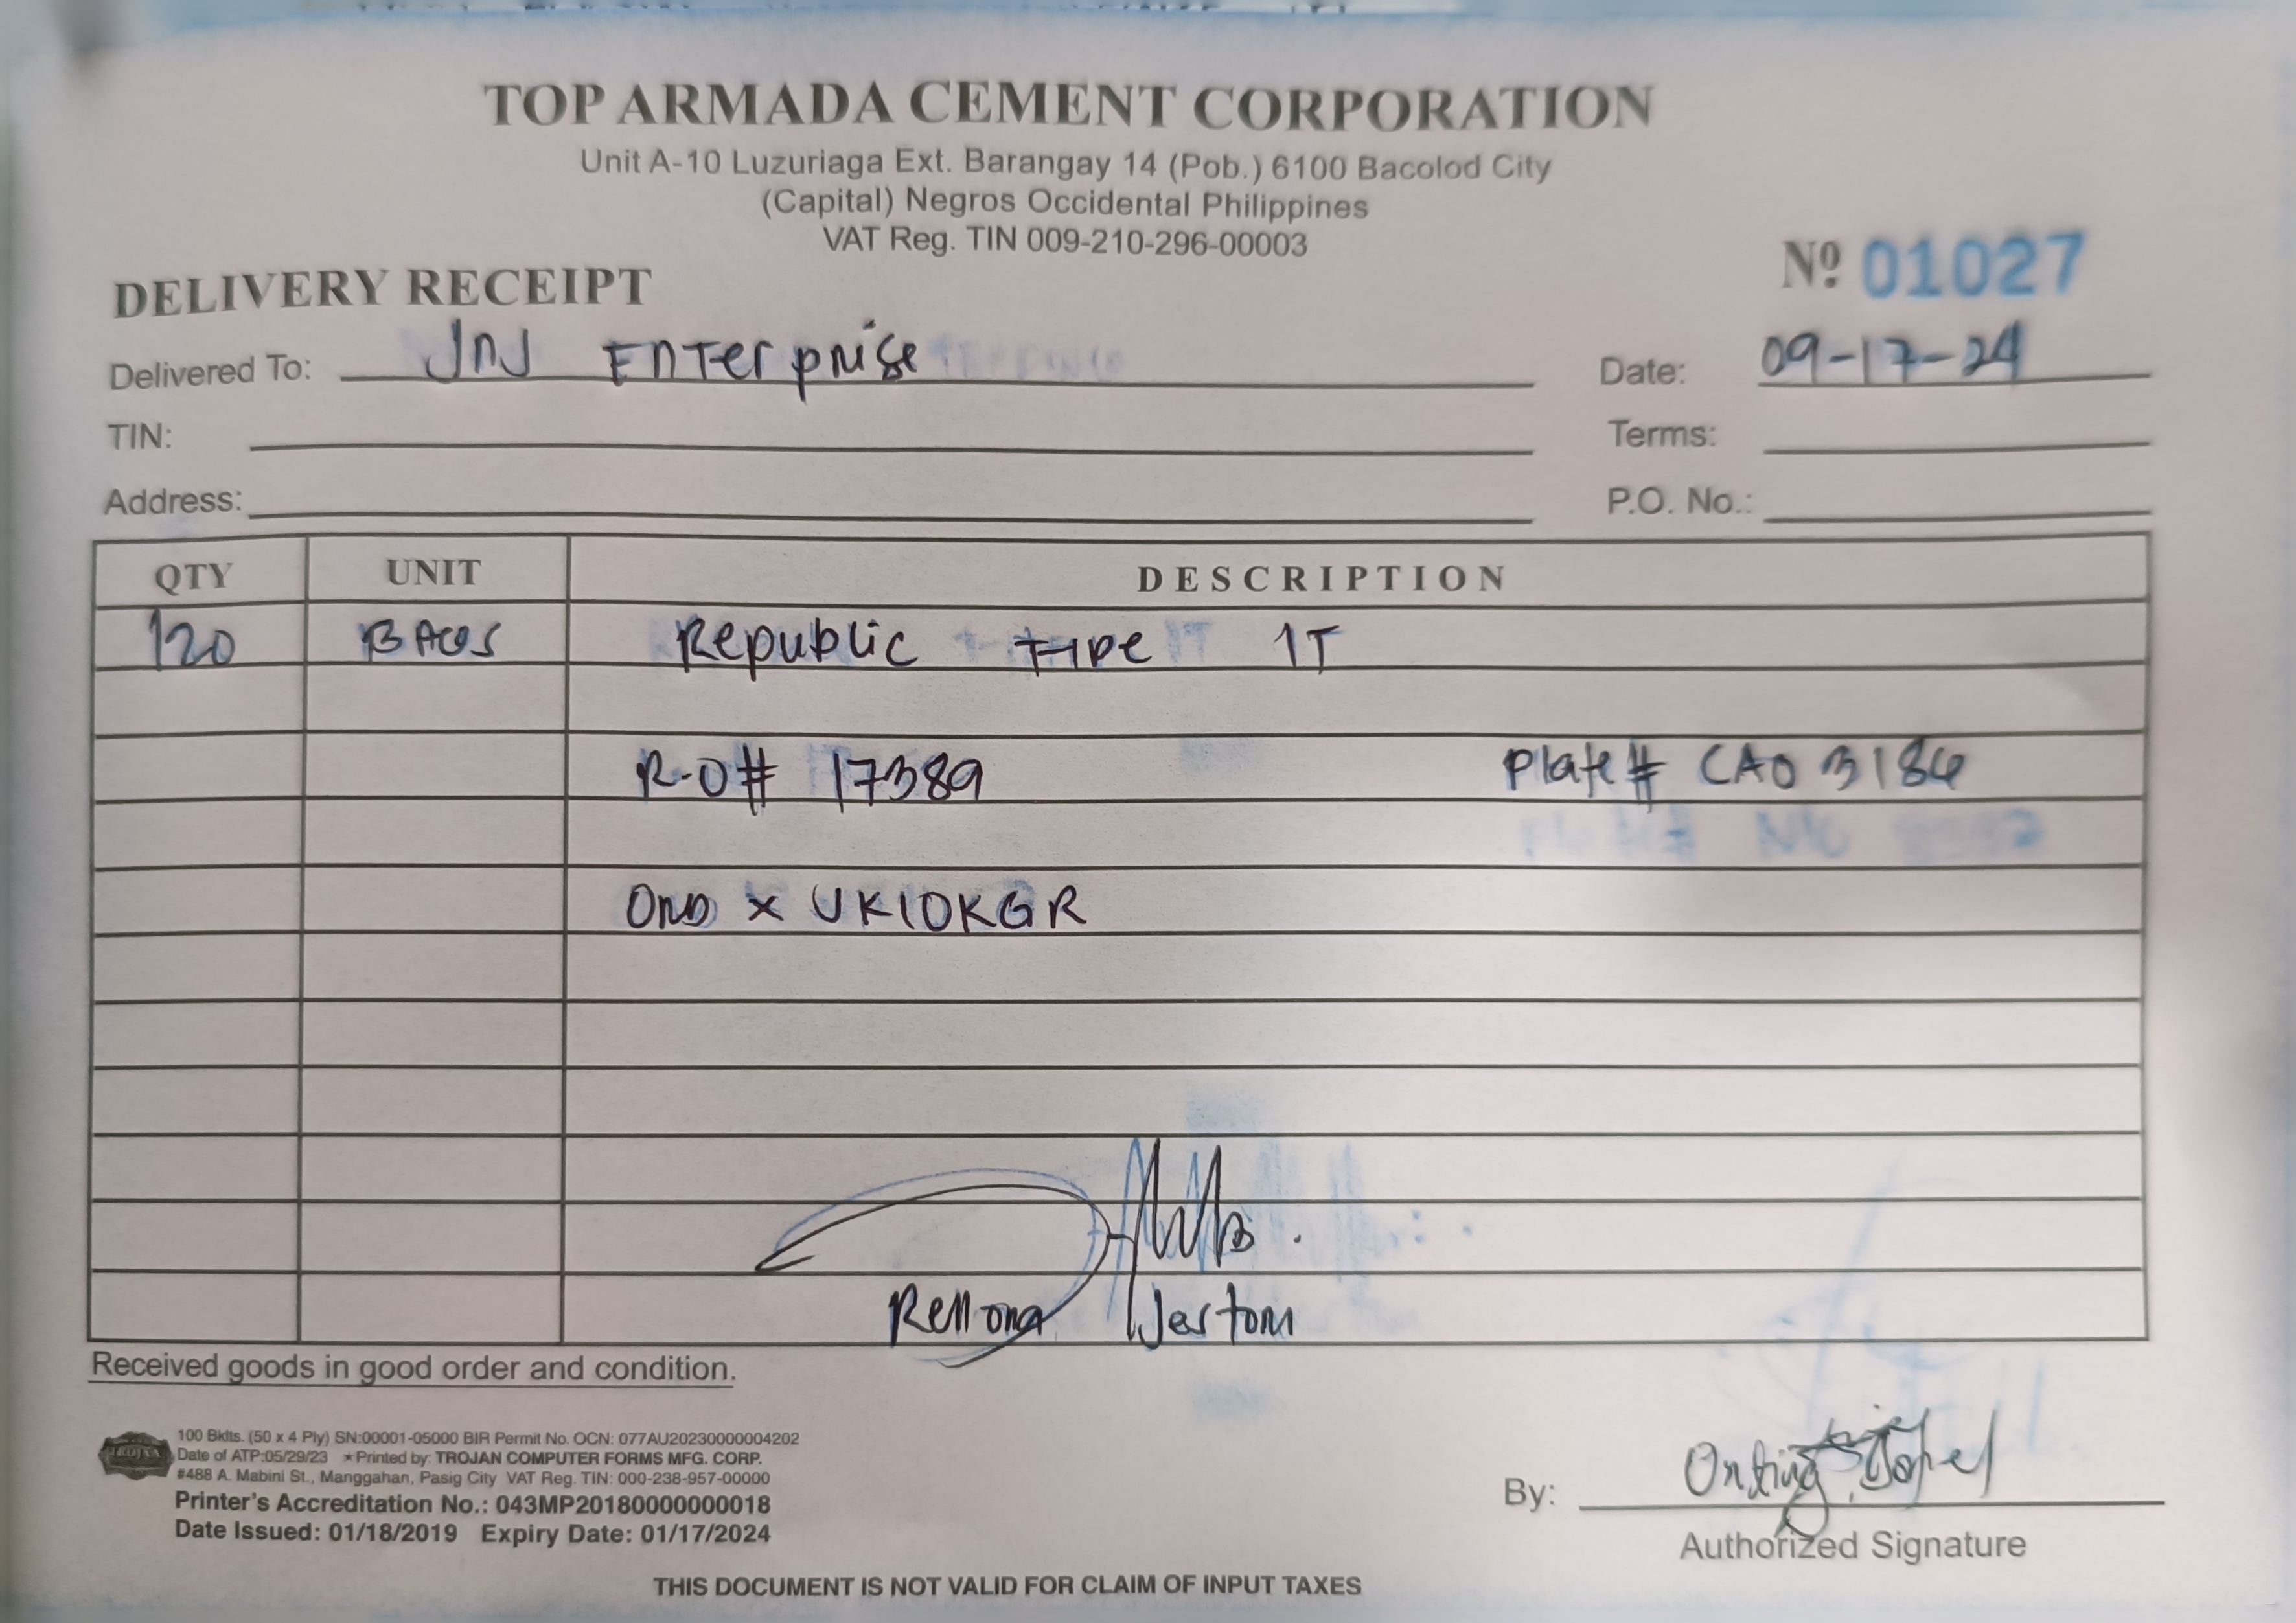 TOP ARMADA CEMENT CORPORATION
Unit A-10 Luzuriaga Ext. Barangay 14 (Pob.) 6100 Bacolod City
(Capital) Negros Occidental Philippines
VAT Reg. TIN 009-210-296-00003
Nº 01027
DELIVERY RECEIPT
Delivered To: JNJ Enterprise Date: 09-17-24
TIN: Terms:
Address: P.O. No.:
QTY UNIT DESCRIPTION
120 BAGS Republic type 1T
R-O# 17389 Plate# CAO 3184
x UK10KGR
Jestoni
Received goods in good order and condition.
TROJAN
100 Bklts. (50 x 4 Ply) SN:00001-05000 BIR Permit No. OCN: 077AU20230000004202
Date of ATP:05/29/23 ★Printed by: TROJAN COMPUTER FORMS MFG. CORP.
#488 A. Mabini St., Manggahan, Pasig City VAT Reg. TIN: 000-238-957-00000
Printer's Accreditation No.: 043MP20180000000018
Date Issued: 01/18/2019 Expiry Date: 01/17/2024
By:
Authorized Signature
THIS DOCUMENT IS NOT VALID FOR CLAIM OF INPUT TAXES